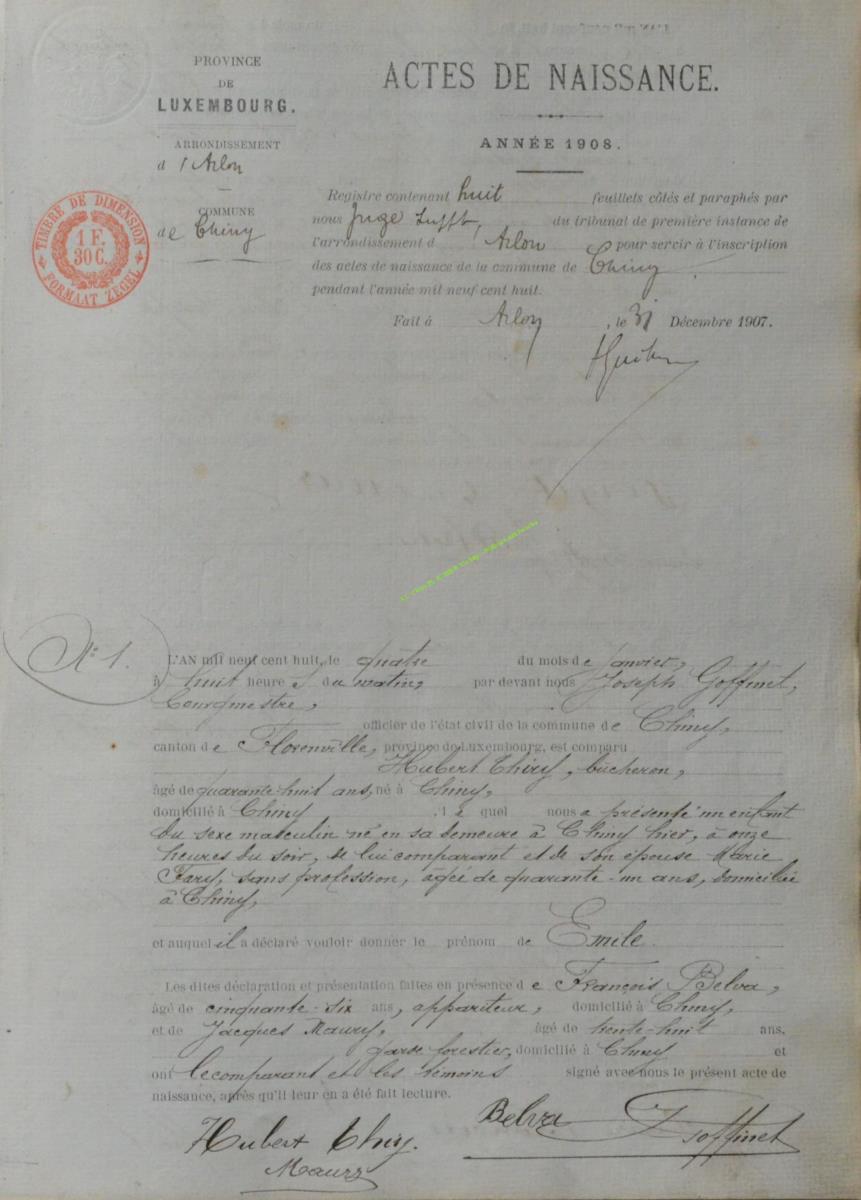 PROVINCE
DE
LUXEMBOURG.
ARRONDISSEMENT
d'Arlon
COMMUNE
de Chiny
TIMBRE DE DIMENSION
1 F.
30 C.
FORMAAT ZEGEL
ACTES DE NAISSANCE.
ANNÉE 1908.
Registre contenant huit feuillets côtés et paraphés par
nous Juge du tribunal de première instance de
l'arrondissement d Arlon pour servir à l'inscription
des actes de naissance de la commune de Chiny
pendant l'année mil neuf cent huit.
Fait à Arlon, le 31 Décembre 1907.
N° 1.
L'AN mil neuf cent huit, le quatre du mois de janvier,
à huit heures du matin, par devant nous Joseph Goffinet,
Bourgmestre,
officier de l'état civil de la commune de Chiny,
canton de Florenville, province de Luxembourg, est comparu
Hubert Thiry, bûcheron,
âgé de quarante-huit ans, né à Chiny,
domicilié à Chiny, lequel nous a présenté un enfant
du sexe masculin né en sa demeure à Chiny hier, à onze
heures du soir, de lui comparant et de son épouse Marie
sans profession, âgée de quarante-un ans, domiciliée
à Chiny,
et auquel il a déclaré vouloir donner le prénom de Emile.
Les dites déclaration et présentation faites en présence de François Belva,
âgé de cinquante-six ans, appariteur, domicilié à Chiny,
et de Jacques Maury, âgé de trente-huit ans,
garde forestier, domicilié à Chiny et
ont le comparant et les témoins signé avec nous le présent acte de
naissance, après qu'il leur en a été fait lecture.
Hubert Thiry. Belva J Goffinet
Maury